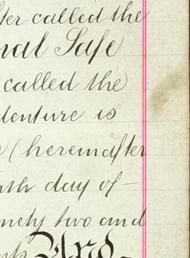 fter called the
nal Safe
called the
denture is
(hereinafter
nth day of —
nety two and
And